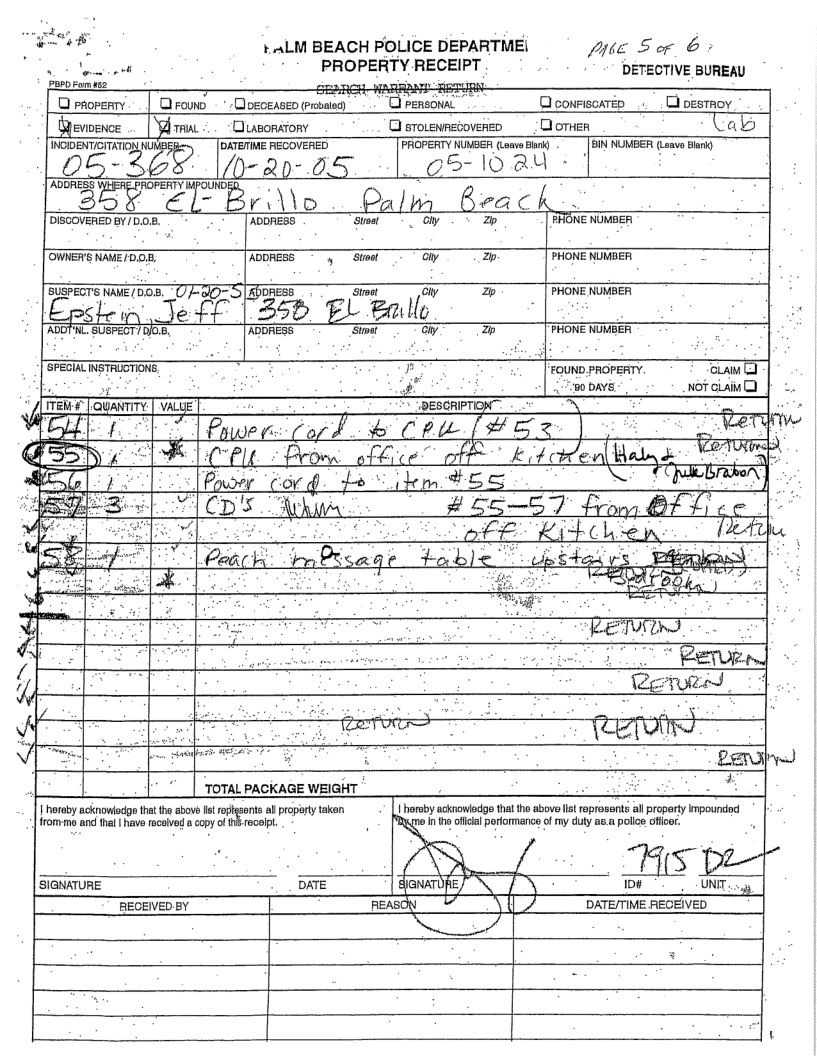 PALM BEACH POLICE DEPARTME
PAGE 5 OF 6
PROPERTY RECEIPT
DETECTIVE BUREAU
PBPD Form #52
SEARCH WARRANT RETURN
PROPERTY FOUND DECEASED (Probated) PERSONAL CONFISCATED DESTROY
EVIDENCE TRIAL LABORATORY STOLEN/RECOVERED OTHER Lab
INCIDENT/CITATION NUMBER DATE/TIME RECOVERED PROPERTY NUMBER (Leave Blank) BIN NUMBER (Leave Blank)
05-368 10-20-05 05-1024
ADDRESS WHERE PROPERTY IMPOUNDED
358 EL-Brillo Palm Beach
DISCOVERED BY / D.O.B. ADDRESS Street City Zip PHONE NUMBER
OWNER'S NAME / D.O.B. ADDRESS Street City Zip PHONE NUMBER
SUSPECT'S NAME / D.O.B. 01-20-5 ADDRESS Street City Zip PHONE NUMBER
Epstein, Jeff 358 EL Brillo
ADDT'NL. SUSPECT / D.O.B. ADDRESS Street City Zip PHONE NUMBER
SPECIAL INSTRUCTIONS FOUND PROPERTY CLAIM
90 DAYS NOT CLAIM
ITEM # QUANTITY VALUE DESCRIPTION
54 1 Power cord to CPU (#53) Return
55 1 CPU from office off kitchen (Haly & Returned
56 1 Power cord to item #55
57 3 CD's #55-57 from Office
off Kitchen Return
58 1 Peach massage table upstairs
RETURN
RETURN
RETURN
RETURN
RETURN RETURN
RETURN
TOTAL PACKAGE WEIGHT
I hereby acknowledge that the above list represents all property taken
from me and that I have received a copy of this receipt.
I hereby acknowledge that the above list represents all property impounded
by me in the official performance of my duty as a police officer.
7915 D2
SIGNATURE DATE SIGNATURE ID# UNIT
RECEIVED BY REASON DATE/TIME RECEIVED